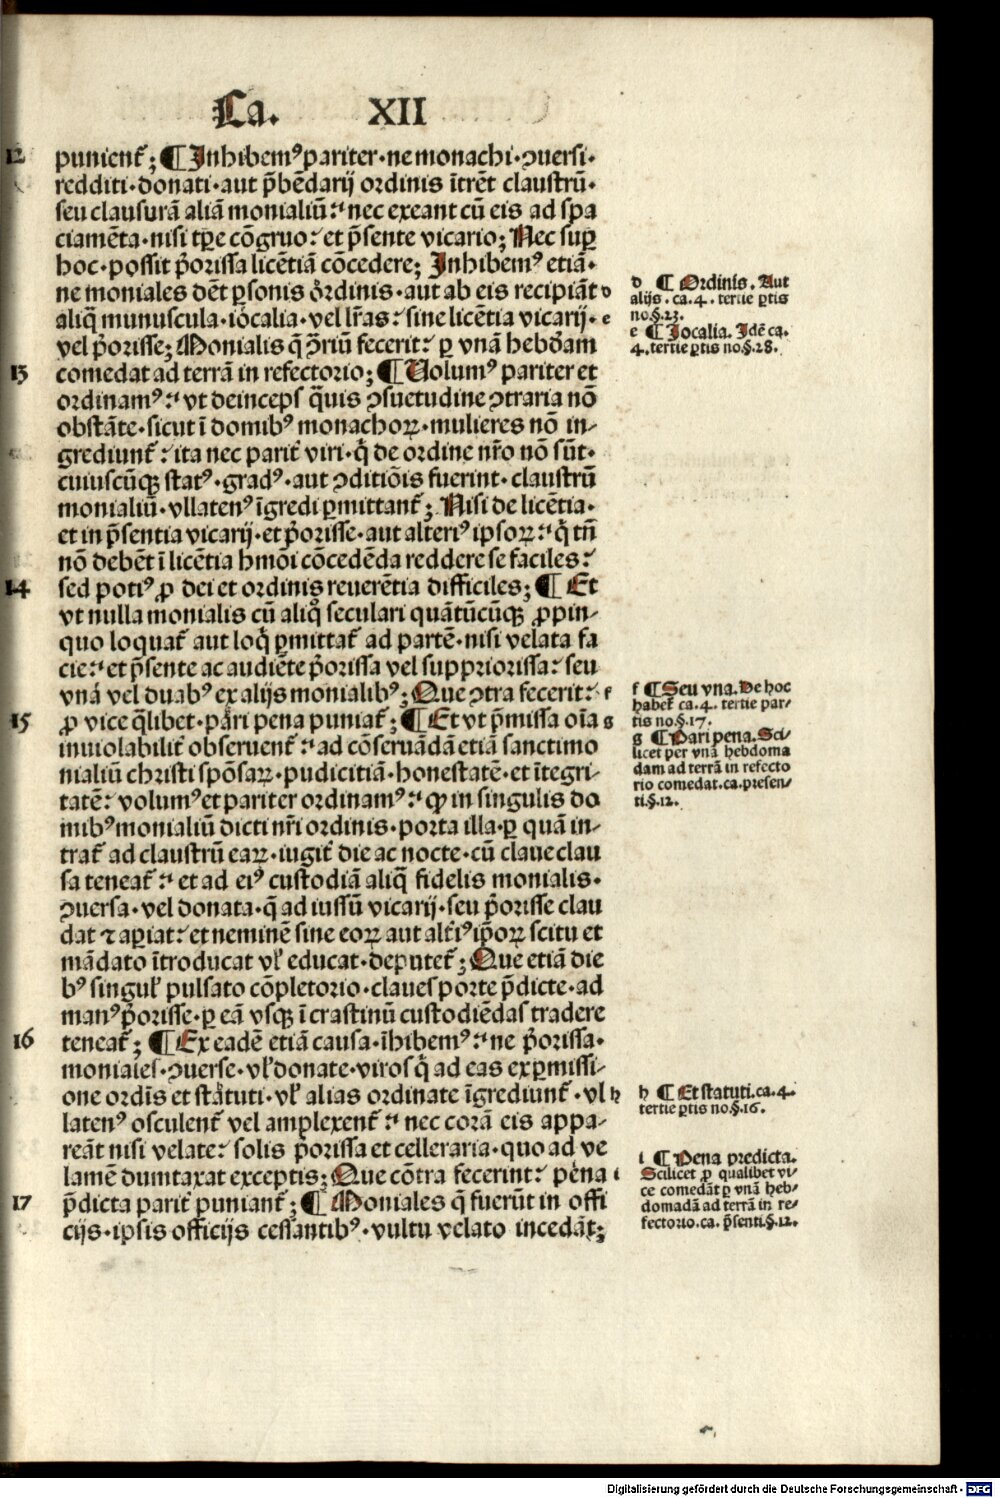 Ca. XII
12 punient᷑; ¶ Inhibemꝰ pariter·ne monachi·ꝯuersi·
redditi·donati·aut p̄bēdarij ordinis ītrēt claustrū·
seu clausurā aliā monialiū:⁊ nec exeant cū eis ad spa
ciamēta·nisi tp̄e cōgruo:et p̄sente vicario; Nec suꝑ
hoc·possit p̄orissa licētiā cōcedere; Inhibemꝰ etiā·
ne moniales dēt ꝑsonis ordinis·aut ab eis recipiāt d
aliq̄ munuscula·iocalia·vel lr̄as:sine licētia vicarij· e
vel p̄orisse; Monialis q̄ ꝯriū fecerit: ꝑ vnā hebdōam
13 comedat ad terrā in refectorio; ¶ Uolumꝰ pariter et
ordinamꝰ: vt deinceps q̄uis ꝯsuetudine ꝯtraria nō
obstāte·sicut ī domibꝰ monachoꝝ·mulieres nō in⸗
grediunt᷑: ita nec parit᷑ viri·q̇ de ordine nr̄o nō sūt·
cuiuscūqꝫ statꝰ·gradꝰ·aut ꝯditiōis fuerint·claustrū
monialiū·vllatenꝰ īgredi ꝑmittant᷑; Nisi de licētia·
et in p̄sentia vicarij·et p̄orisse·aut alteriꝰ ipsoꝝ: q̇ tn̄
nō debēt ī licētia hmōi cōcedēda reddere se faciles:
14 sed potiꝰ ꝓ dei et ordinis reuerētia difficiles; ¶ Et
vt nulla monialis cū aliq̊ seculari quātūcūqꝫ ꝓpin⸗
quo loquat᷑ aut loq̇ ꝑmittat᷑ ad partē·nisi velata fa
cie: et p̄sente ac audiēte p̄orissa vel suppriorissa: seu
vna vel duabꝰ ex alijs monialibꝰ; Que ꝯtra fecerit: f
15 ꝓ vice q̄libet·pari pena puniat᷑; ¶ Et vt p̄missa oīa g
inuiolabilit᷑ obseruent᷑: ad cōseruādā etiā sanctimo
nialiū christi spōsaꝝ·pudicitiā·honestatē·et ītegri⸗
tatē: volumꝰ et pariter ordinamꝰ: ꝙ in singulis do
mibꝰ monialiū dicti nr̄i ordinis·porta illa·ꝑ quā in⸗
trat᷑ ad claustrū eaꝝ·iugit᷑ die ac nocte·cū claue clau
sa teneat᷑: et ad eiꝰ custodiā aliq̄ fidelis monialis·
ꝯuersa·vel donata·q̄ ad iussū vicarij·seu p̄orisse clau
dat ⁊ aꝑiat: et neminē sine eoꝝ aut alt᷑iꝰ ip̄oꝝ scitu et
mādato ītroducat vl᷑ educat·deputet᷑; Que etiā die
bꝰ singul᷑ pulsato cōpletorio·claues porte p̄dicte·ad
manꝰ p̄orisse·ꝑ eā vsqꝫ ī crastinū custodiēdas tradere
16 teneat᷑; ¶ Ex eadē etiā causa·īhibemꝰ: ne p̄orissa·
moniales·ꝯuerse·vl᷑ donate·viros q̇ ad eas ex ꝑmissi⸗
one ordīs et statuti·vl᷑ alias ordinate īgrediunt᷑·vl h
latenꝰ osculent᷑ vel amplexent᷑: nec corā eis appa⸗
reāt nisi velate: solis p̄orissa et celleraria·quo ad ve
lamē dumtaxat exceptis; Que cōtra fecerint: pena i
17 p̄dicta parit᷑ puniant᷑; ¶ Moniales q̄ fuerūt in offi
cijs·ipsis officijs cessantibꝰ·vultu velato incedāt;
d ¶ Ordinis. Aut
alijs. ca.4. tertie ꝑtis
no.§.23.
e ¶ Iocalia. Idē ca.
4. tertie ꝑtis no.§.28.
f ¶ Seu vna. De hoc
habet᷑ ca.4. tertie par⸗
tis no.§.17.
g ¶ Pari pena. Sci⸗
licet per vnā hebdoma
dam ad terrā in refecto
rio comedat.ca.presen⸗
ti.§.12.
h ¶ Et statuti.ca.4.
tertie ꝑtis no.§.16.
i ¶ Pena predicta.
Scilicet ꝓ qualibet vi⸗
ce comedāt ꝑ vnā heb⸗
domadā ad terrā in re⸗
fectorio.ca. p̄senti.§.12.
Digitalisierung gefördert durch die Deutsche Forschungsgemeinschaft - DFG